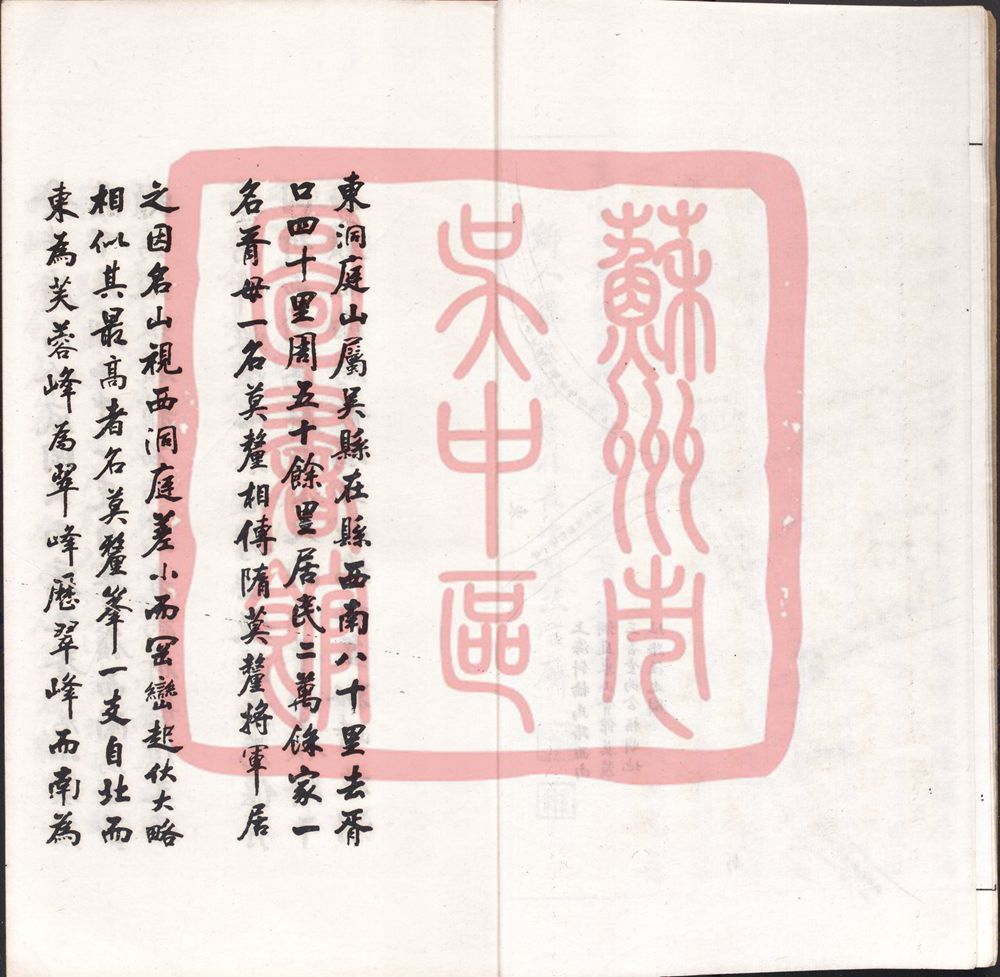 蘇州市
吳中區
圖書館
東洞庭山屬吳縣在縣西南八十里去胥
口四十里周五十餘里居民二萬餘家一
名胥母一名莫釐相傳隋莫釐將軍居
之因名山視西洞庭差小而岡巒起伏大略
相似其最高者名莫釐峯一支自北而
東為芙蓉峰為翠峰歷翠峰而南為